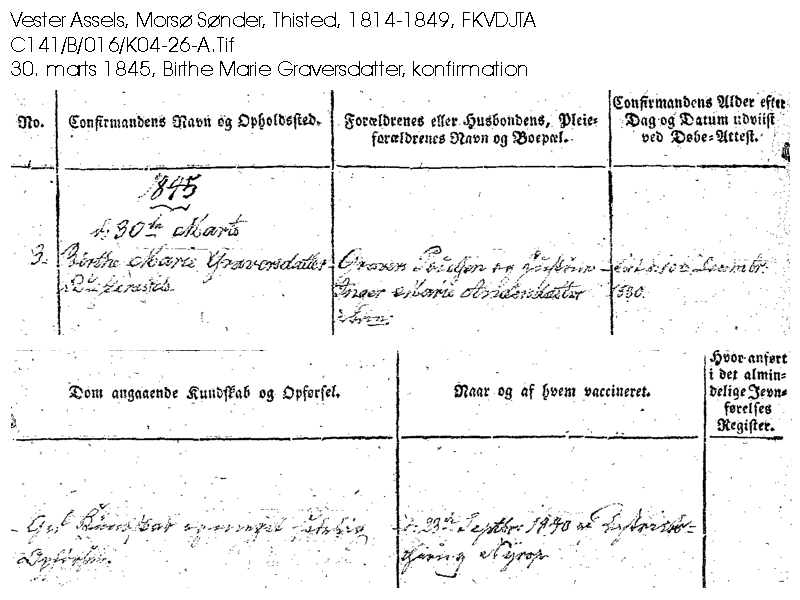 Vester Assels, Morsø Sønder, Thisted, 1814-1849, FKVDJTA
C141/B/016/K04-26-A.Tif
30. marts 1845, Birthe Marie Graversdatter, konfirmation
No.
Confirmandens Navn og Opholdssted.
Forældrenes eller Husbondens, Pleie-
forældrenes Navn og Boepæl.
Confirmandens Alder efter
Dag og Datum udviist
ved Døbe-Attest.
1845
d. 30te Marts
3.
Birthe Marie Graversdatter
Graver Poulsen og
Inger Marie Andersdatter
1830.
Dom angaaende Kundskab og Opførsel.
Naar og af hvem vaccineret.
Hvor anført
i det almin-
delige Jevn-
førelses
Register.
God Kundskab og meget
Opførsel.
d. 23de Septbr 1840 af
Nyrop